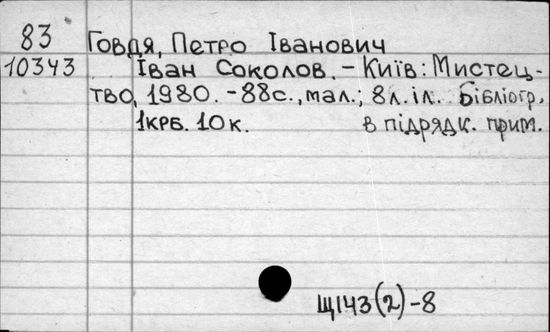 83 Говдя, Петро Іванович
10343 Іван Соколов. - Київ: Мистец-
тво, 1980. - 88с., мал.; 8л. іл. Бібліогр.
1крб. 10к. в підрядк. прим.
Щ143(2)-8